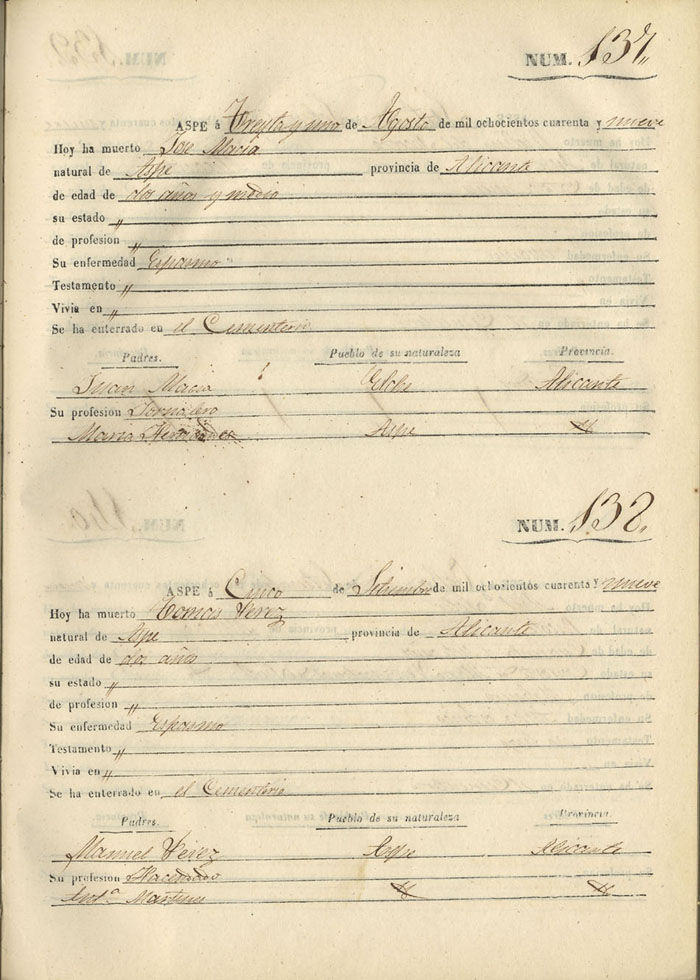 NUM. 137,,
ASPE á Treynta y uno de Agosto de mil ochocientos cuarenta y nueve
Hoy ha muerto Jose Macia
natural de Aspe provincia de Alicante
de edad de dos años y medio
su estado ,,
de profesion ,,
Su enfermedad Espasmo
Testamento ,,
Vivia en ,,
Se ha enterrado en el Cementerio
Padres. Pueblo de su naturaleza Provincia.
Juan Macia Elche Alicante
Su profesion Jornalero
Maria Aspe
NUM. 138.
ASPE á Cinco de Setiembre de mil ochocientos cuarenta y nueve
Hoy ha muerto Tomas Perez
natural de Aspe provincia de Alicante
de edad de dos años
su estado ,,
de profesion ,,
Su enfermedad Espasmo
Testamento ,,
Vivia en ,,
Se ha enterrado en el Cementerio
Padres. Pueblo de su naturaleza Provincia.
Manuel Perez Aspe Alicante
Su profesion Hacendado
Antª. Martinez